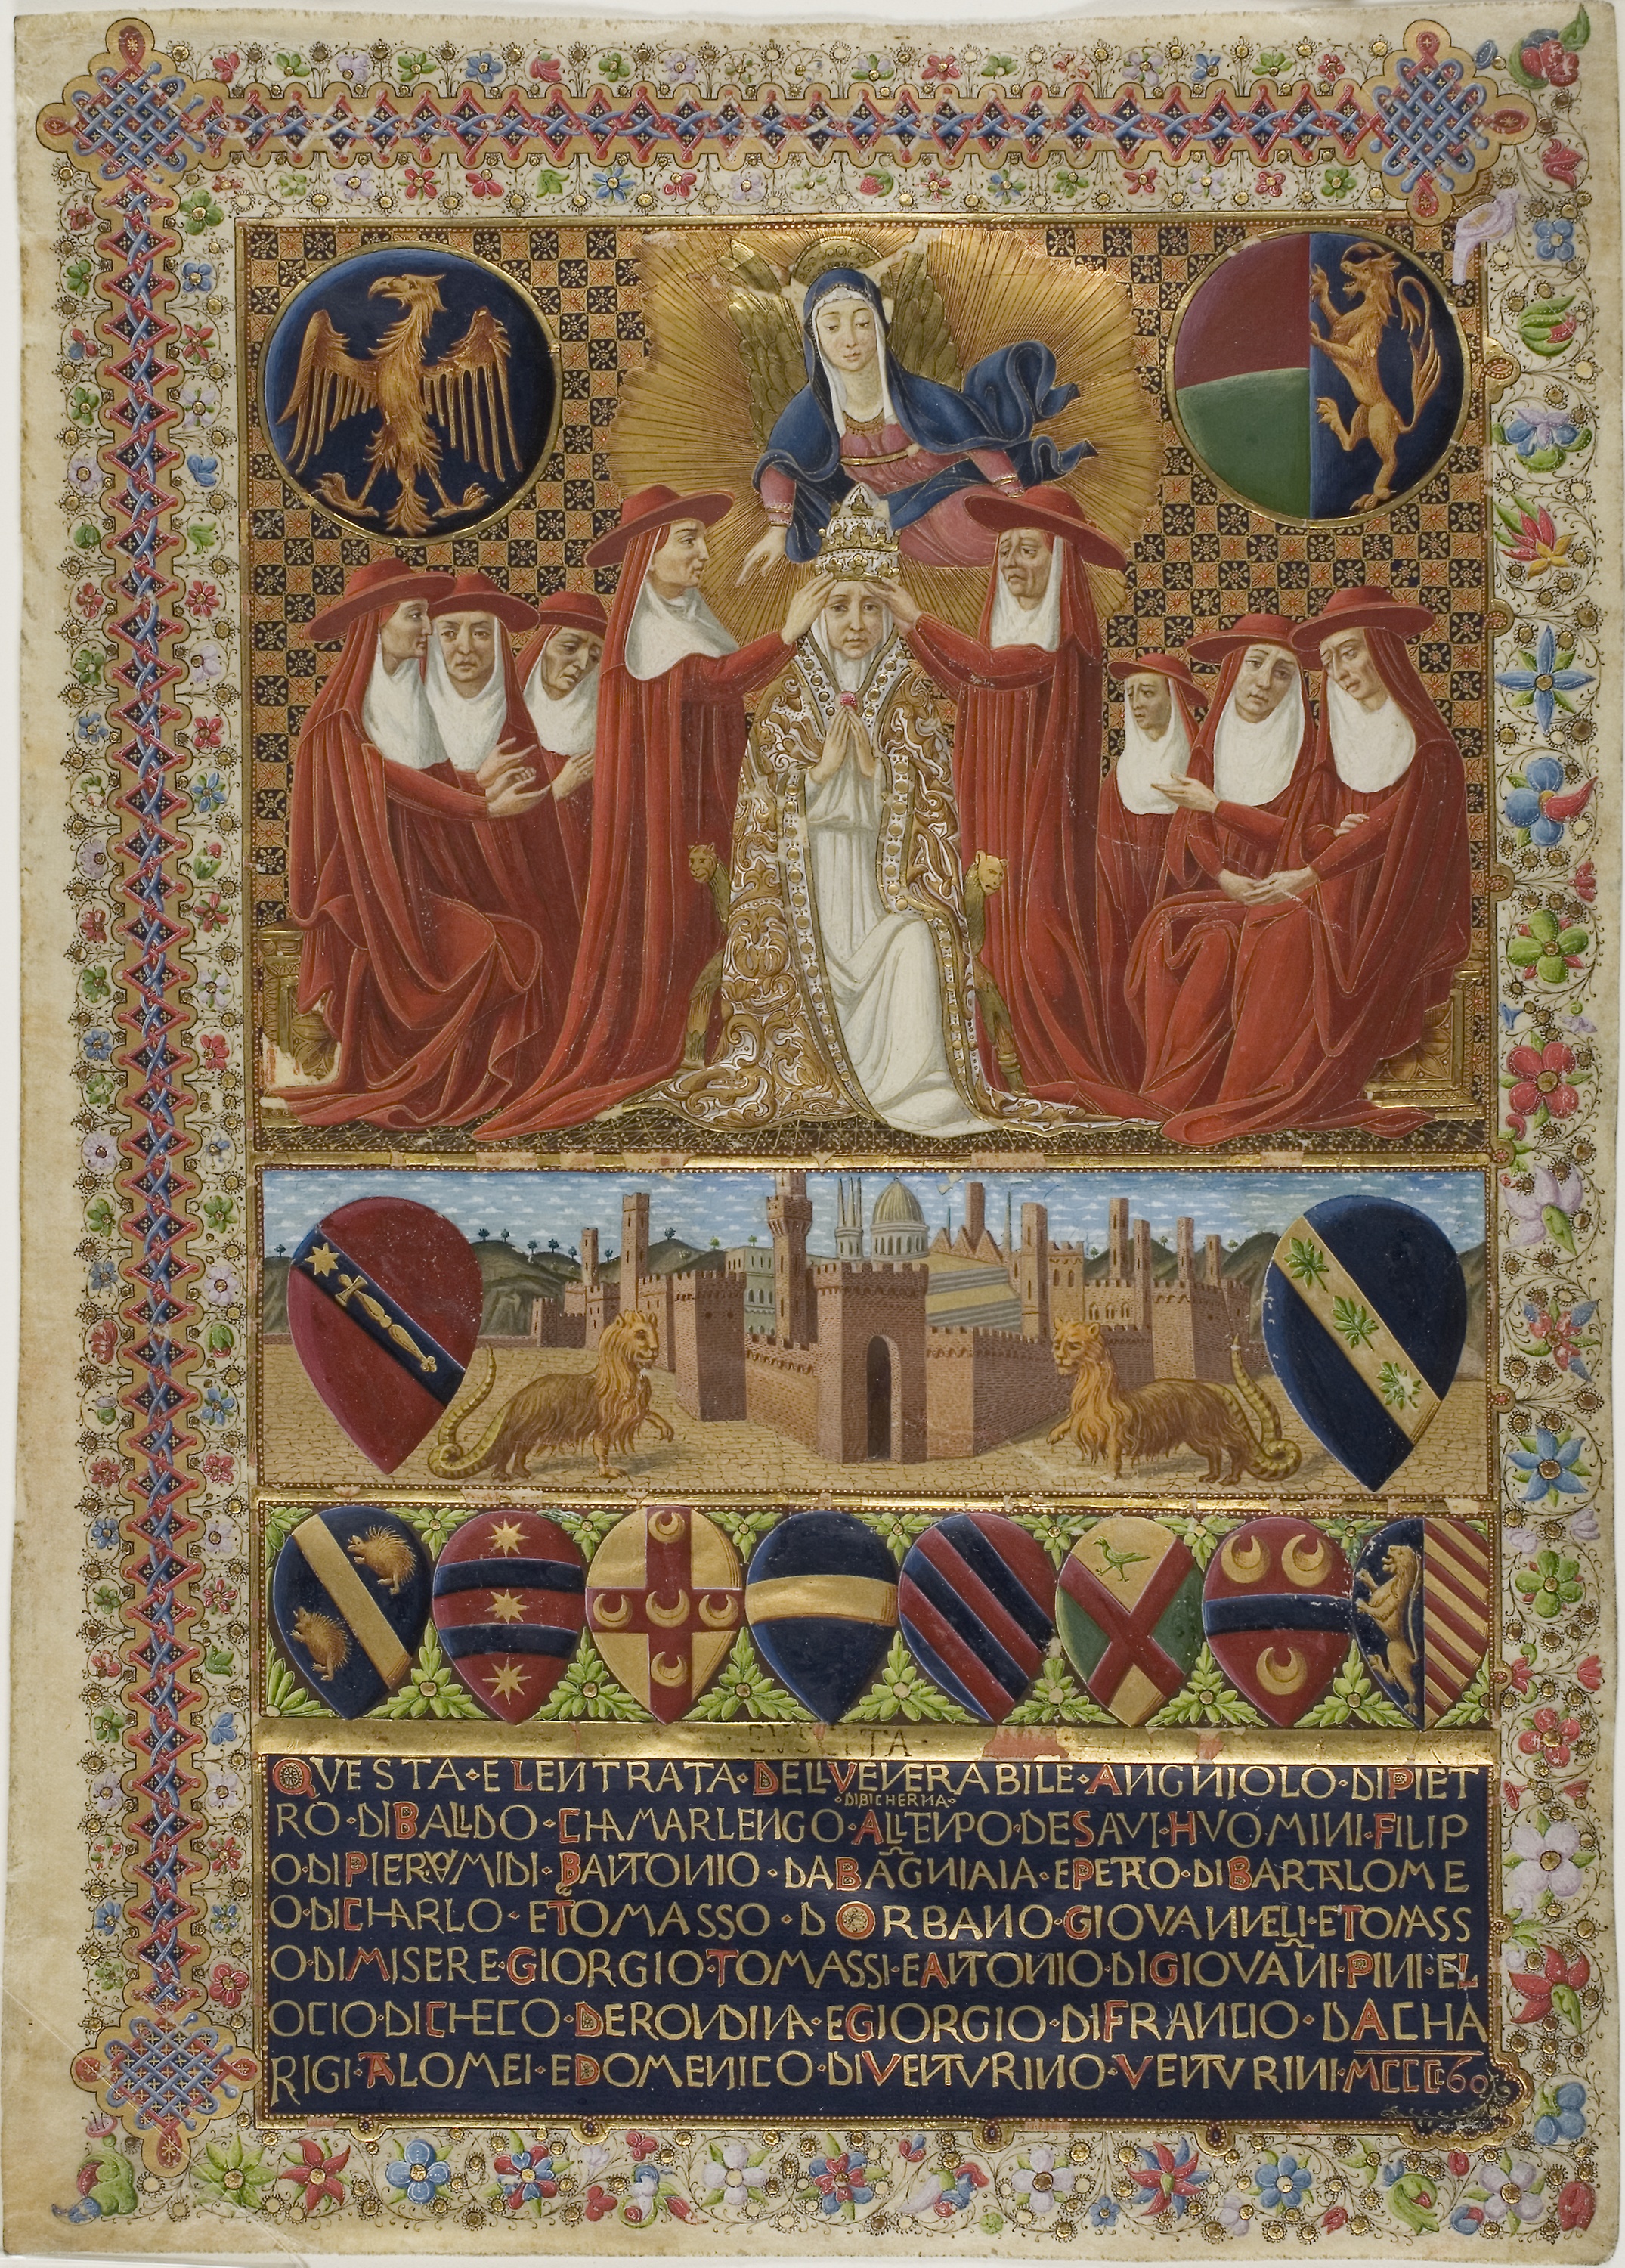 EVSCITA
QVESTA·E LENTRATA·DELLVENERABILE·ANGNIOLO·DIPIET
·DIBICHERNA·
RO·DIBALDO·CHAMARLENGO·ALTENPO·DESAVI·HVOMINI·FILIP
O·DIPIEROVMIDI·BANTONIO·DABAGNIAIA·EPETRO·DIBARTALOME
O·DICHARLO·ETOMASSO·DORBANO·GIOVANNELI·ETOMASS
O·DIMISERE·GIORGIO·TOMASSI·EANTONIO·DIGIOVANI·PINI·EL
OCIO·DICHECO·DERONDINA·EGIORGIO·DIFRANCIO·DACHA
RIGI·TALOMEI·EDOMENICO·DIVENTVRINO·VENTVRINI·MCCCC60